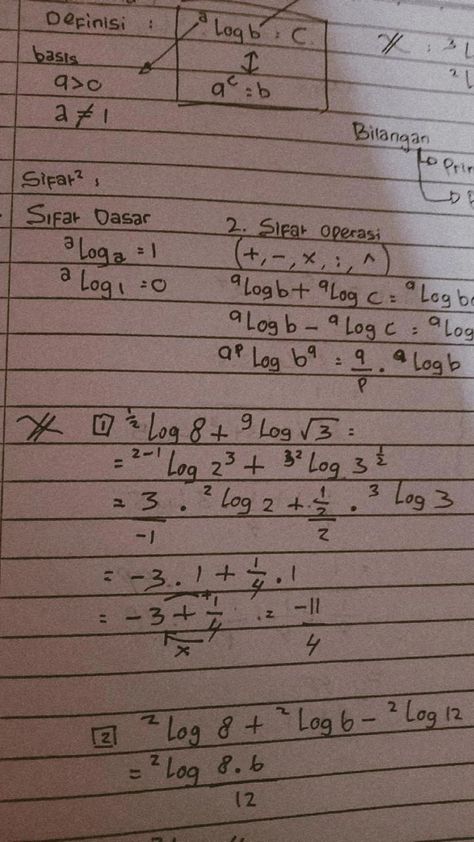 Definisi : ᵃLog b = C
↕
aᶜ = b
basis
a>0
a ≠ 1
Bilangan
Sifat² :
Sifat Dasar
ᵃLog a = 1
ᵃLog 1 = 0
2. Sifat operasi
(+, -, ×, :, ^)
ᵃLog b + ᵃLog c = ᵃLog b
ᵃLog b - ᵃLog c = ᵃLog
aᵖ Log b^q = q/p . ᵃLog b
[1] ^½Log 8 + ⁹Log √3 =
= ^2-1 Log 2³ + ^3² Log 3^½
= 3/-1 . ²Log 2 + ½/2 . ³Log 3
= -3 . 1 + ¼ . 1
= -3 + ¼ = -11/4
[2] ²Log 8 + ²Log 6 - ²Log 12
= ²Log 8.6/12